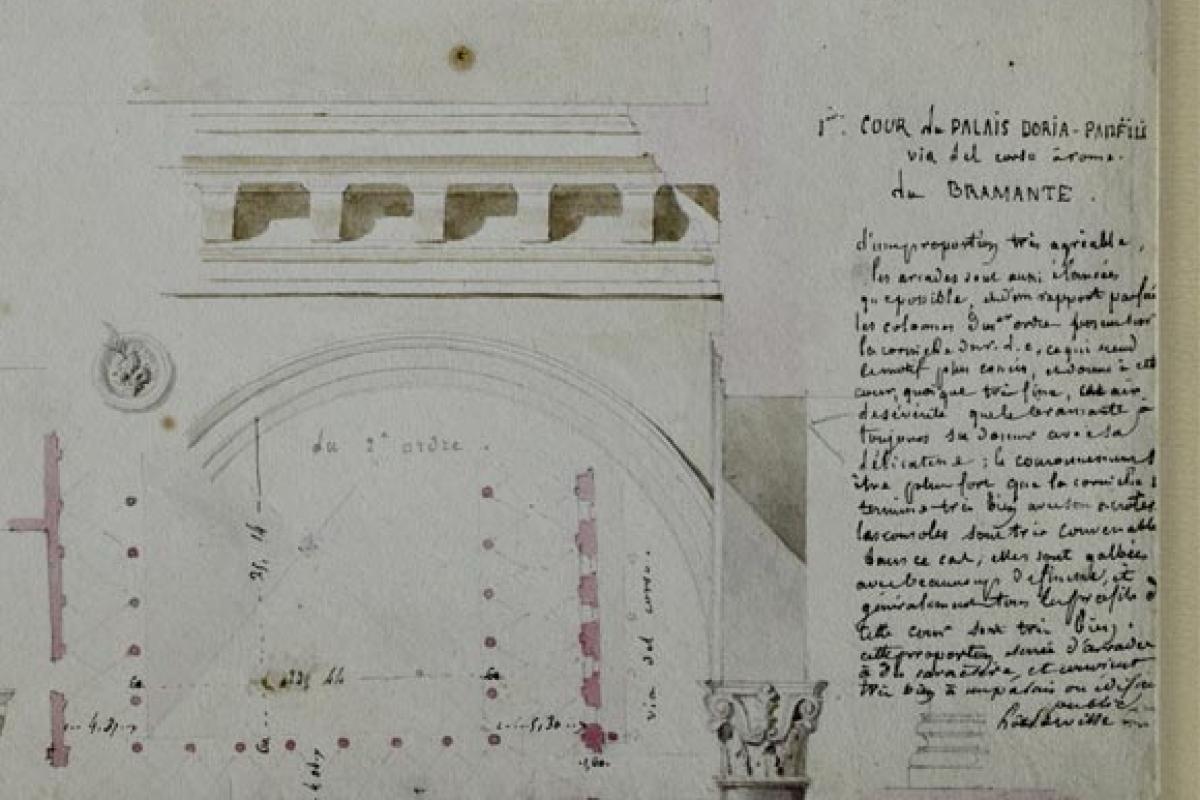 1re. COUR du PALAIS DORIA-PANFILI
via del corso à rome.
du BRAMANTE.
d'une proportion très agréable,
les arcades sont aussi élancées
que possible, et d'un rapport parfai
les colonnes du ordre posent sur
la corniche du r.d.c, ce qui rend
le motif plus concis, et donne à cette
cour, quoique très fine, cet air
de sévérité que le bramante a
toujours su donner avec sa
délicatesse; le couronnement
être plus fort que la corniche
termine très bien avec son
les consoles sont très convenable
dans ce cas, elles sont galbées
avec beaucoup de finesse, et
généralement tous les profils
cette cour sont très bien.
cette proportion serrée d'arcades
a du caractère, et convient
très bien à un palais ou édifice
public
du 2e ordre.
25,14
4.21
5,30
via del corso.